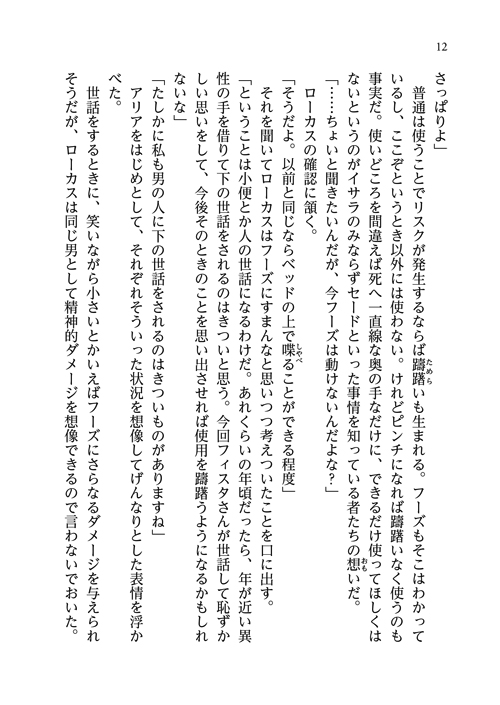 12
さっぱりよ」
　普通は使うことでリスクが発生するならば躊躇いも生まれる。フーズもそこはわかって
いるし、ここぞというとき以外には使わない。けれどピンチになれば躊躇いなく使うのも
事実だ。使いどころを間違えば死へ一直線な奥の手なだけに、できるだけ使ってほしくは
ないというのがイサラのみならずセードといった事情を知っている者たちの想いだ。
「……ちょいと聞きたいんだが、今フーズは動けないんだよな？」
　ローカスの確認に頷く。
「そうだよ。以前と同じならベッドの上で喋ることができる程度」
　それを聞いてローカスはフーズにすまんなと思いつつ考えついたことを口に出す。
「ということは小便とか人の世話になるわけだ。あれくらいの年頃だったら、年が近い異
性の手を借りて下の世話をされるのはきついと思う。今回フィスタさんが世話して恥ずか
しい思いをして、今後そのときのことを思い出させれば使用を躊躇うようになるかもしれ
ないな」
「たしかに私も男の人に下の世話をされるのはきついものがありますね」
　アリアをはじめとして、それぞれそういった状況を想像してげんなりとした表情を浮か
べた。
　世話をするときに、笑いながら小さいとかいえばフーズにさらなるダメージを与えられ
そうだが、ローカスは同じ男として精神的ダメージを想像できるので言わないでおいた。